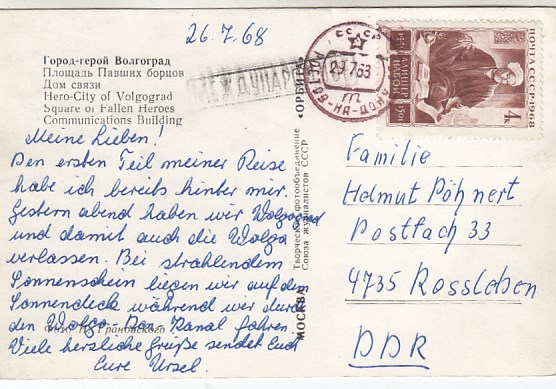 26.7.68
Город-герой Волгоград
Площадь Павших борцов
Дом связи
Hero-City of Volgograd
Square of Fallen Heroes
Communications Building
Meine Lieben!
Den ersten Teil meiner Reise
habe ich bereits hinter mir.
Gestern abend haben wir Wolgograd
und damit auch die Wolga
verlassen. Bei strahlendem
Sonnenschein liegen wir auf dem
Sonnendeck während wir durch
den Wolga-Don-Kanal fahren.
Viele herzliche Grüße sendet Euch
Eure Ursel.
Грановского
МОСКВА
Творческое фотообъединение «ОРБИТА»
Союза журналистов СССР
МЕЖДУНАРО
СССР
РОСТОВ-НА-ДОНУ
ПОЧТА СССР 1968
4к
Familie
Helmut Pöhnert
Postfach 33
4735 Rossleben
DDR